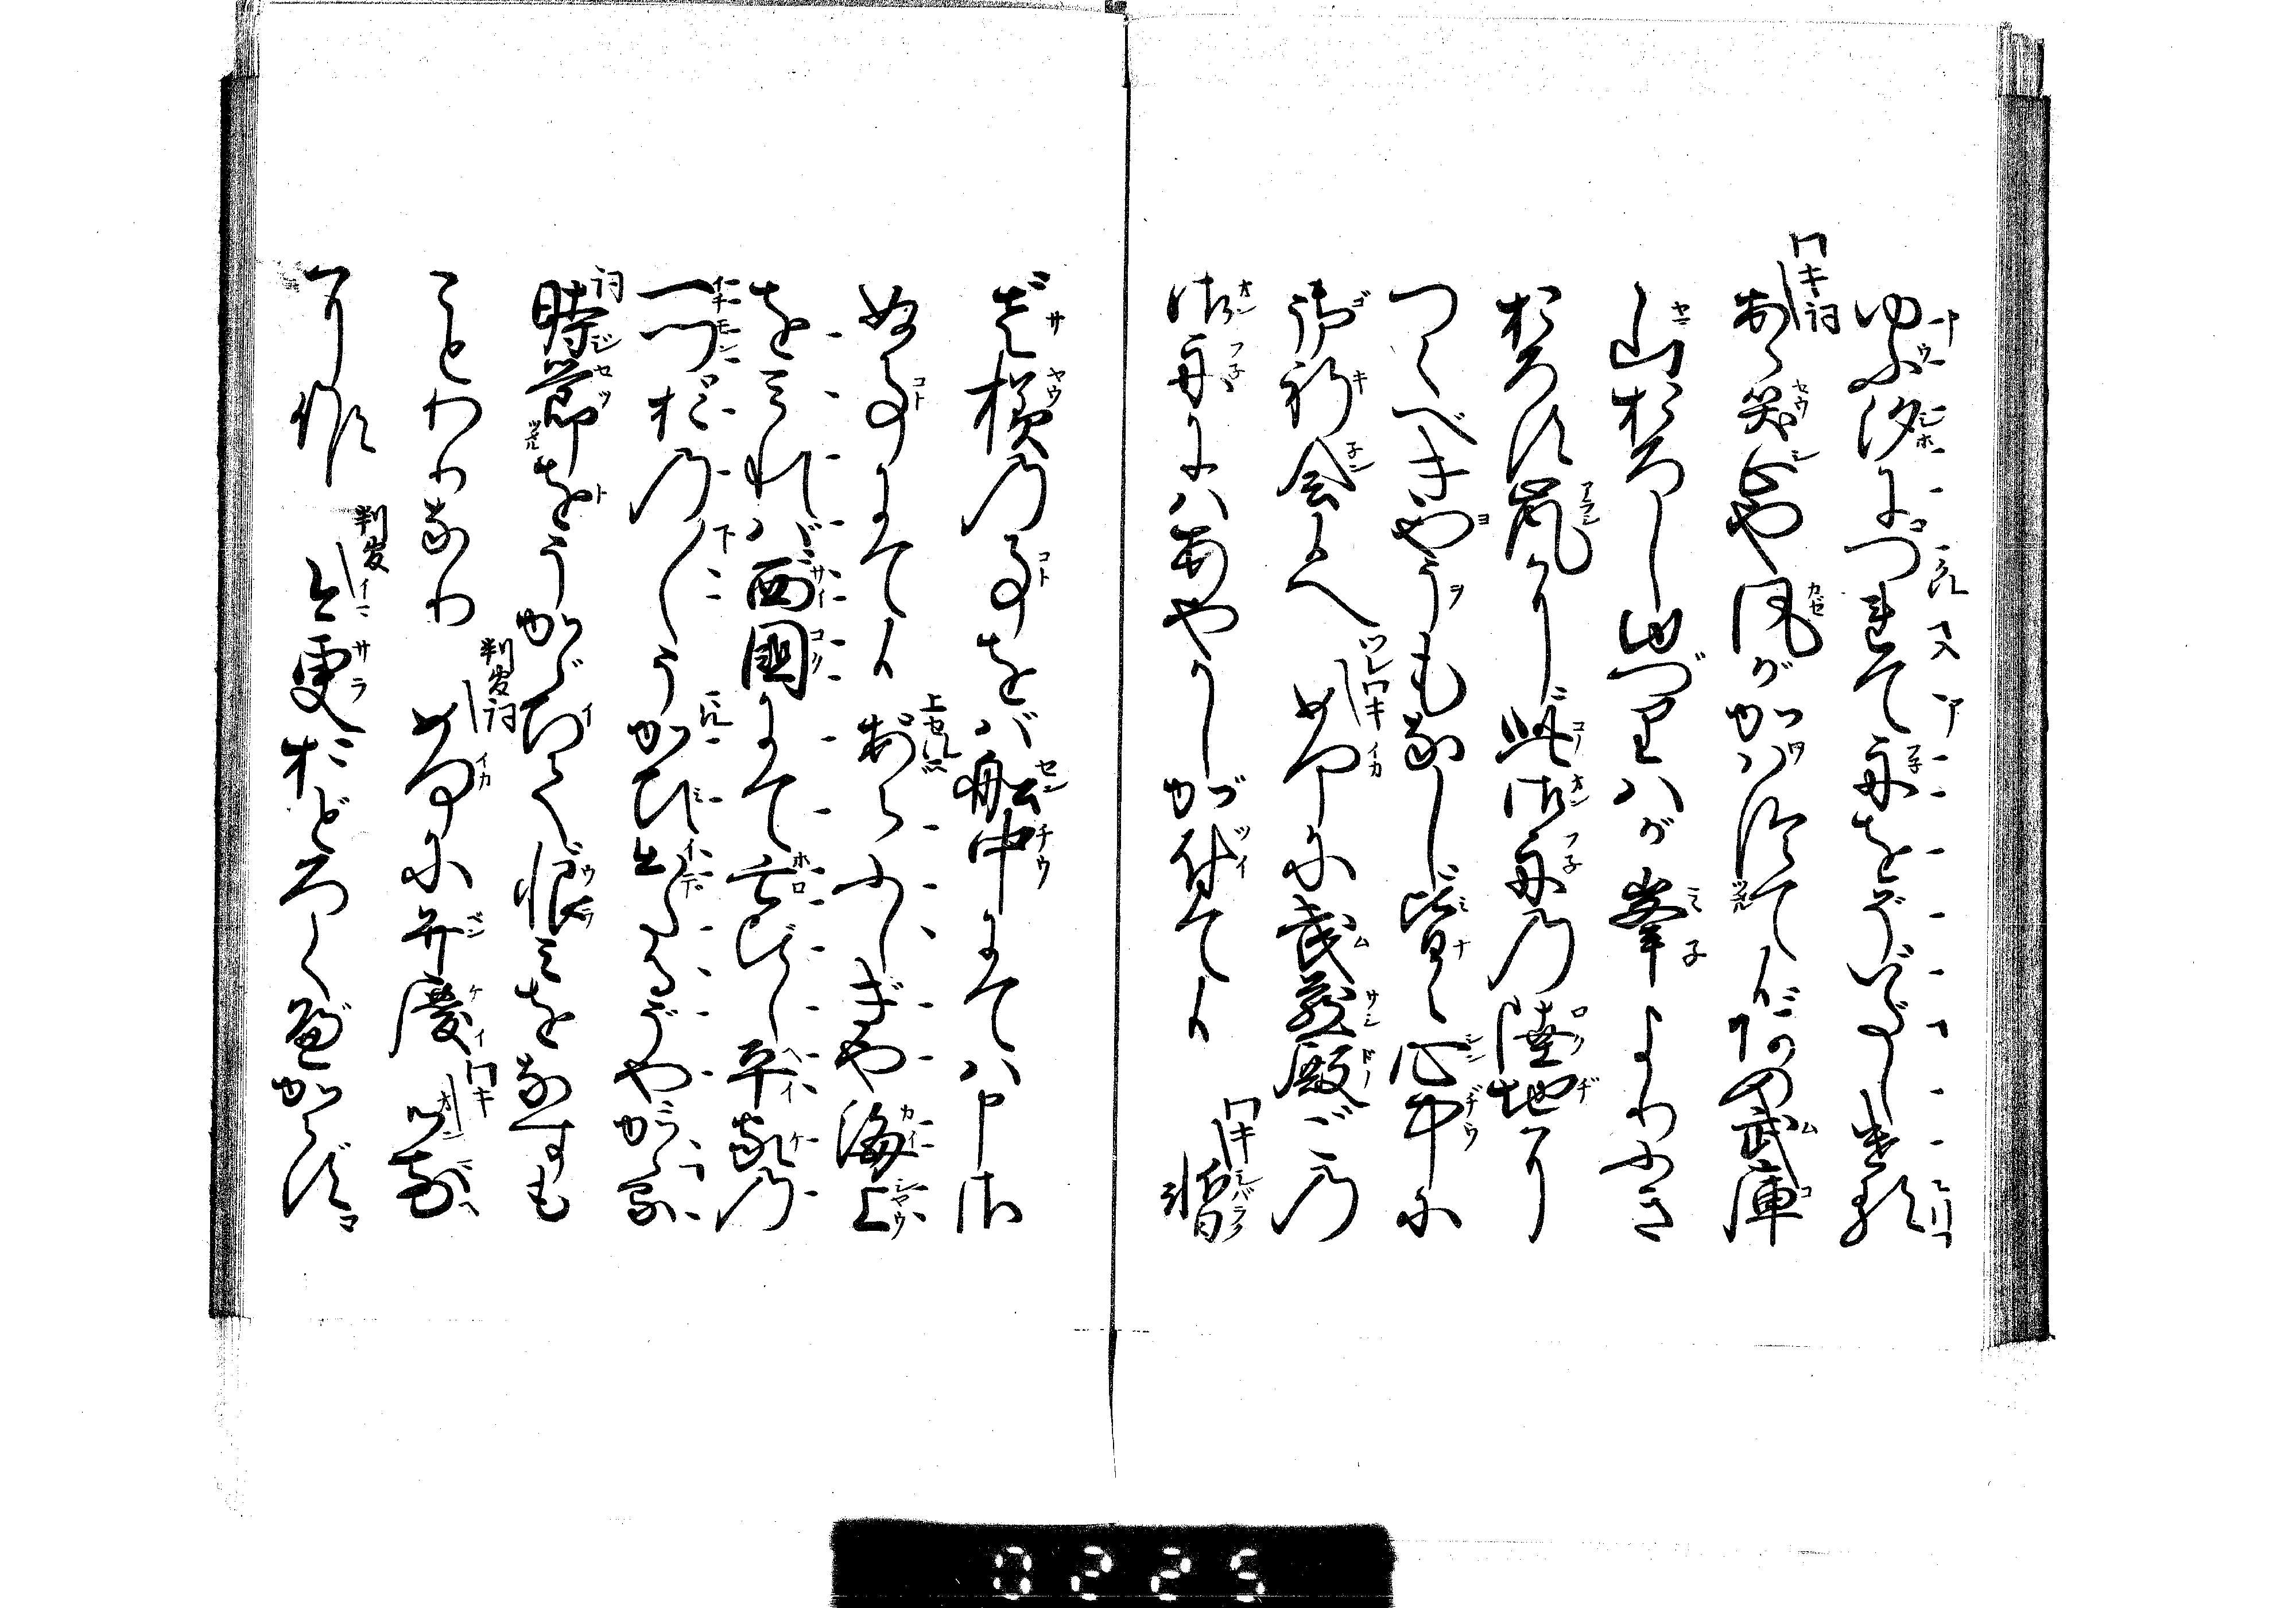 ゆふ汐につれて舟をぞいだしける
ワキ詞
あら笑止や風がかはつて候あの武庫
山おろしゆづりはが峯よりふき
おろす嵐に此御舟の陸地に
つくべきやうもなし皆々心中に
御祈念候へ ツレワキ いかに武蔵殿この
御舟にはあやかしが付て候 ワキ 暫
さ様の事をば船中にては申さ
ぬ事にて候 あらふしぎや海上
をみれば西國にて亡びし平家の
一門おの〳〵うかび出たるぞやかゝる
時節をうかゞひて恨をなすも
ことわりなり 判官詞 いかに弁慶 ワキ 御前
に候 判官 今更おどろくべからず